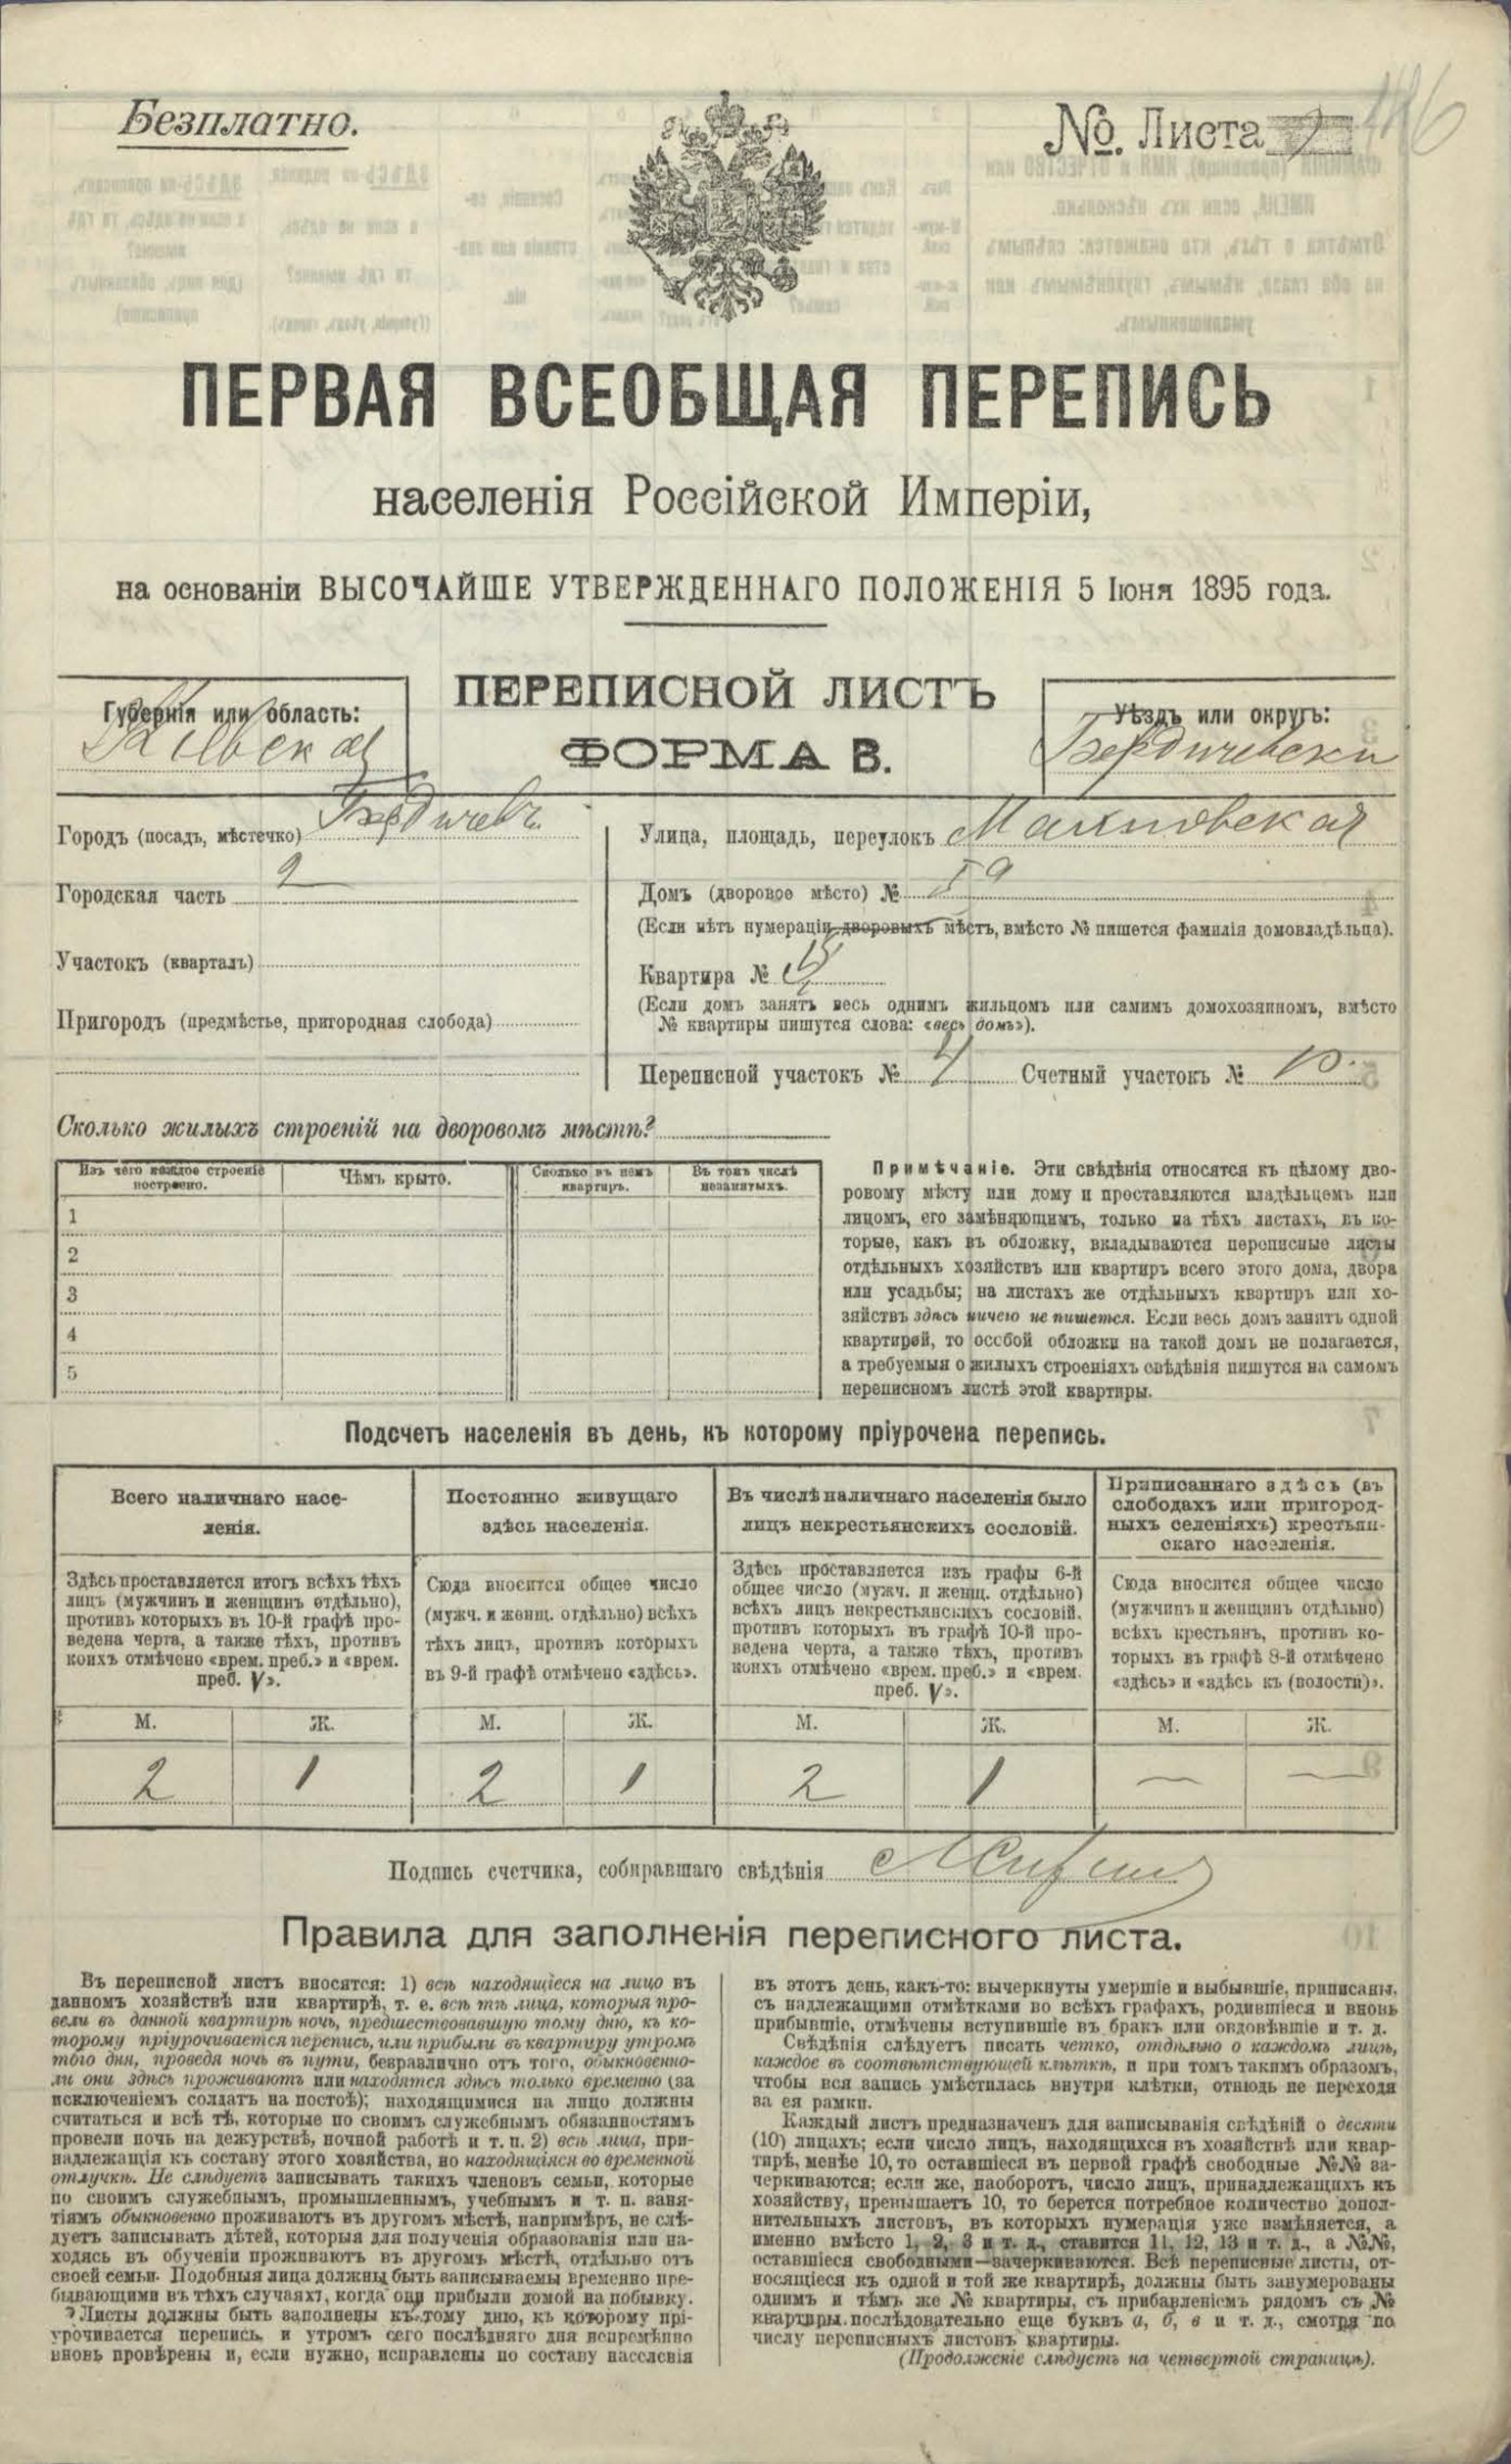 Безплатно.
№ Листа
146
ПЕРВАЯ ВСЕОБЩАЯ ПЕРЕПИСЬ
населенія Россійской Имперіи,
на основаніи ВЫСОЧАЙШЕ УТВЕРЖДЕННАГО ПОЛОЖЕНІЯ 5 Іюня 1895 года.
ПЕРЕПИСНОЙ ЛИСТЪ
ФОРМА В.
Губернія или область:
Кіевская
Уѣздъ или округъ:
Бердичевски
Городъ (посадъ, мѣстечко) Бердичевъ
Городская часть 2
Участокъ (кварталъ)
Пригородъ (предмѣстье, пригородная слобода)
Улица, площадь, переулокъ Махновская
Домъ (дворовое мѣсто) №
(Если нѣтъ нумераціи дворовыхъ мѣстъ, вмѣсто № пишется фамилія домовладѣльца).
Квартира №
(Если домъ занятъ весь однимъ жильцомъ или самимъ домохозяиномъ, вмѣсто
№ квартиры пишутся слова: «весь домъ»).
Переписной участокъ № 4 Счетный участокъ № 10.
Сколько жилыхъ строеній на дворовомъ мѣстѣ?
Изъ чего каждое строеніе построено.
Чѣмъ крыто.
Сколько въ немъ квартиръ.
Въ томъ числѣ незанятыхъ.
1
2
3
4
5
Примѣчаніе. Эти свѣдѣнія относятся къ цѣлому дво-
ровому мѣсту или дому и проставляются владѣльцемъ или
лицомъ, его замѣняющимъ, только на тѣхъ листахъ, въ ко-
торые, какъ въ обложку, вкладываются переписные листы
отдѣльныхъ хозяйствъ или квартиръ всего этого дома, двора
или усадьбы; на листахъ же отдѣльныхъ квартиръ или хо-
зяйствъ здѣсь ничего не пишется. Если весь домъ занятъ одной
квартирой, то особой обложки на такой домъ не полагается,
а требуемыя о жилыхъ строеніяхъ свѣдѣнія пишутся на самомъ
переписномъ листѣ этой квартиры.
Подсчетъ населенія въ день, къ которому пріурочена перепись.
Всего наличнаго насе-
ленія.
Здѣсь проставляется итогъ всѣхъ тѣхъ
лицъ (мужчинъ и женщинъ отдѣльно),
противъ которыхъ въ 10-й графѣ про-
ведена черта, а также тѣхъ, противъ
коихъ отмѣчено «врем. преб.» и «врем.
преб. V».
Постоянно живущаго
здѣсь населенія.
Сюда вносится общее число
(мужч. и женщ. отдѣльно) всѣхъ
тѣхъ лицъ, противъ которыхъ
въ 9-й графѣ отмѣчено «здѣсь».
Въ числѣ наличнаго населенія было
лицъ некрестьянскихъ сословій.
Здѣсь проставляется изъ графы 6-й
общее число (мужч. и женщ. отдѣльно)
всѣхъ лицъ некрестьянскихъ сословій,
противъ которыхъ въ графѣ 10-й про-
ведена черта, а также тѣхъ, противъ
коихъ отмѣчено «врем. преб.» и «врем.
преб. V».
Приписаннаго здѣсь (въ
слободахъ или пригород-
ныхъ селеніяхъ) крестьян-
скаго населенія.
Сюда вносится общее число
(мужчинъ и женщинъ отдѣльно)
всѣхъ крестьянъ, противъ ко-
торыхъ въ графѣ 8-й отмѣчено
«здѣсь» и «здѣсь къ (волости)».
М. Ж. М. Ж. М. Ж. М. Ж.
2 1 2 1 2 1 — —
Подпись счетчика, собиравшаго свѣдѣнія
Правила для заполненія переписного листа.
Въ переписной листъ вносятся: 1) всѣ находящіеся на лицо въ
данномъ хозяйствѣ или квартирѣ, т. е. всѣ тѣ лица, которыя про-
вели въ данной квартирѣ ночь, предшествовавшую тому дню, къ ко-
торому пріурочивается перепись, или прибыли въ квартиру утромъ
того дня, проведя ночь въ пути, безразлично отъ того, обыкновенно-
ли они здѣсь проживаютъ или находятся здѣсь только временно (за
исключеніемъ солдатъ на постоѣ); находящимися на лицо должны
считаться и всѣ тѣ, которые по своимъ служебнымъ обязанностямъ
провели ночь на дежурствѣ, ночной работѣ и т. п. 2) всѣ лица, при-
надлежащія къ составу этого хозяйства, но находящіяся во временной
отлучкѣ. Не слѣдуетъ записывать такихъ членовъ семьи, которые
по своимъ служебнымъ, промышленнымъ, учебнымъ и т. п. заня-
тіямъ обыкновенно проживаютъ въ другомъ мѣстѣ, напримѣръ, не слѣ-
дуетъ записывать дѣтей, которыя для полученія образованія или на-
ходясь въ обученіи проживаютъ въ другомъ мѣстѣ, отдѣльно отъ
своей семьи. Подобныя лица должны быть записываемы временно пре-
бывающими въ тѣхъ случаяхъ, когда они прибыли домой на побывку.
Листы должны быть заполнены къ тому дню, къ которому прі-
урочивается перепись, и утромъ сего послѣдняго дня непремѣнно
вновь провѣрены и, если нужно, исправлены по составу населенія
въ этотъ день, какъ-то: вычеркнуты умершіе и выбывшіе, приписаны,
съ надлежащими отмѣтками во всѣхъ графахъ, родившіеся и вновь
прибывшіе, отмѣчены вступившіе въ бракъ или овдовѣвшіе и т. д.
Свѣдѣнія слѣдуетъ писать четко, отдѣльно о каждомъ лицѣ,
каждое въ соотвѣтствующей клѣткѣ, и при томъ такимъ образомъ,
чтобы вся запись умѣстилась внутри клѣтки, отнюдь не переходя
за ея рамки.
Каждый листъ предназначенъ для записыванія свѣдѣній о десяти
(10) лицахъ; если число лицъ, находящихся въ хозяйствѣ или квар-
тирѣ, менѣе 10, то оставшіеся въ первой графѣ свободные №№ за-
черкиваются; если же, наоборотъ, число лицъ, принадлежащихъ къ
хозяйству, превышаетъ 10, то берется потребное количество допол-
нительныхъ листовъ, въ которыхъ нумерація уже измѣняется, а
именно вмѣсто 1, 2, 3 и т. д., ставится 11, 12, 13 и т. д., а №№,
оставшіеся свободными—зачеркиваются. Всѣ переписные листы, от-
носящіеся къ одной и той же квартирѣ, должны быть занумерованы
однимъ и тѣмъ же № квартиры, съ прибавленіемъ рядомъ съ №
квартиры последовательно еще буквъ а, б, в и т. д., смотря по
числу переписныхъ листовъ квартиры.
(Продолженіе слѣдуетъ на четвертой страницѣ).